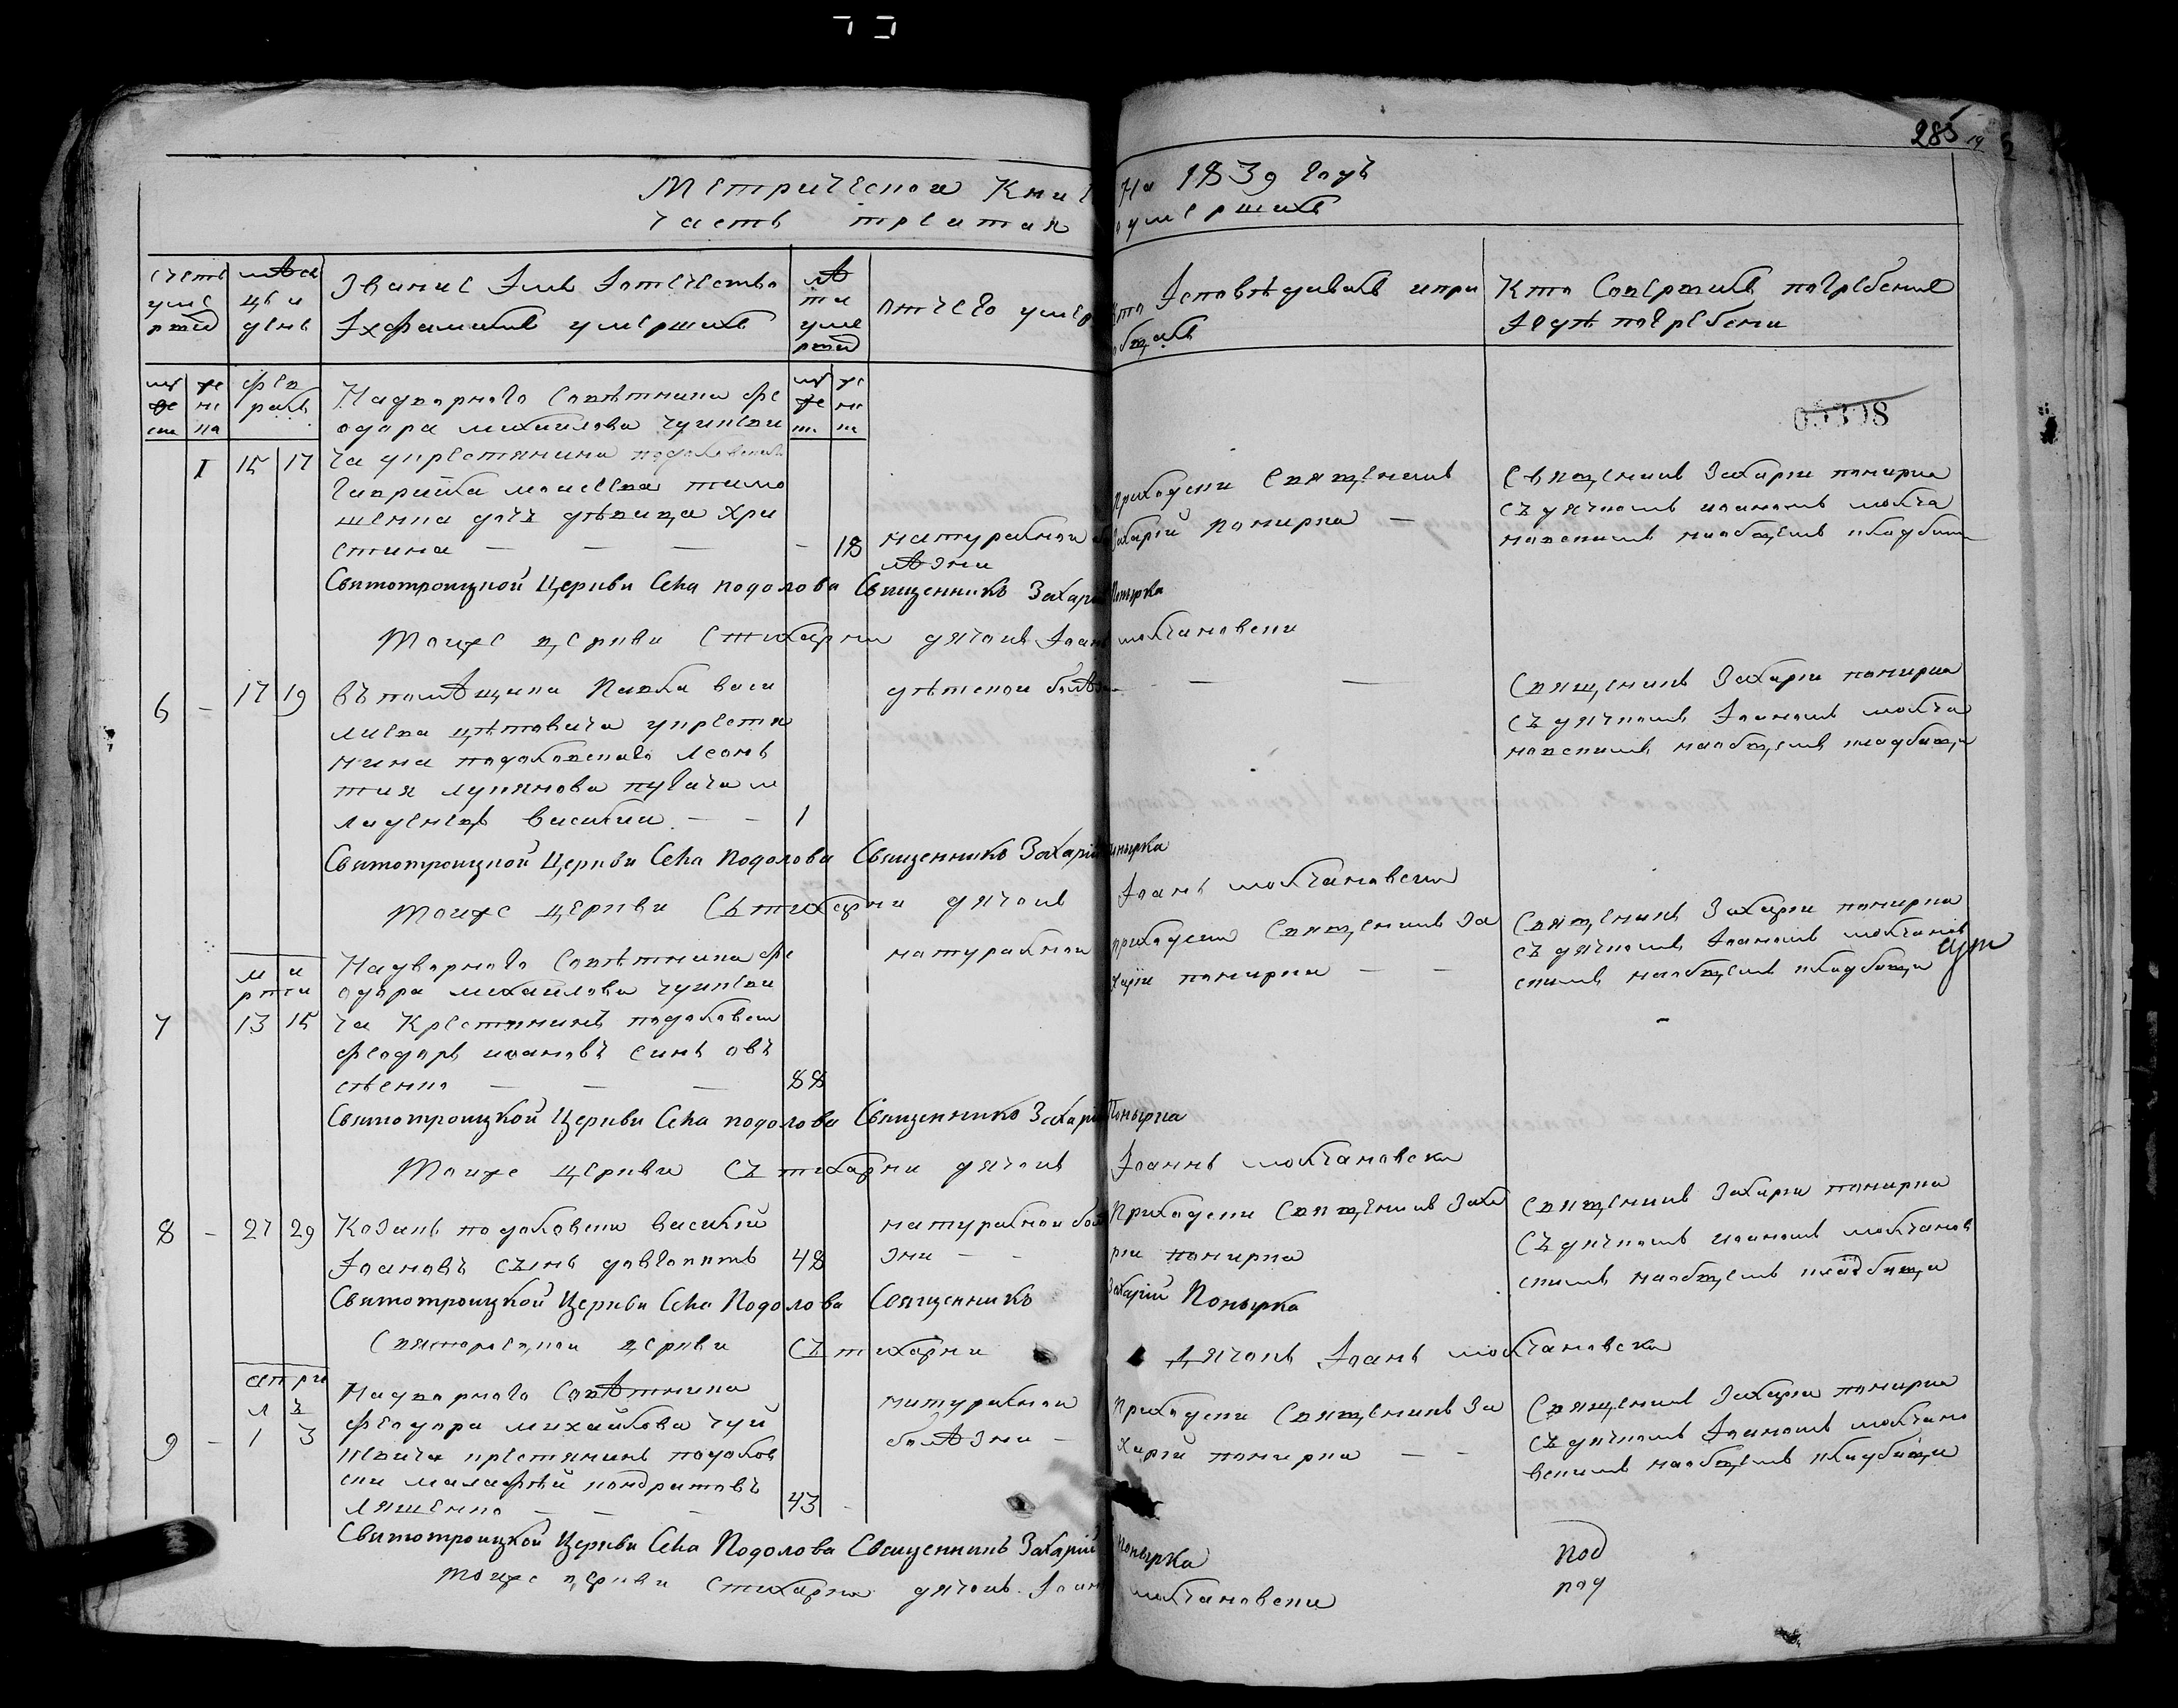 285
Метрической Книги На 1839 годъ
часть третия о умершихъ
счетъ умерших
месяцъ и день
Званіе Имя Іотечество
Іхфамилія умершихъ
лѣта умерших
отчего умер
кто Исповѣдивалъ ипри
общалъ
Кто Совершилъ погребеніе
Ігдѣ погребени
февраль
05398
Надворного Совѣтника Фе
одора михайлова чуйкеви
I 15 17 ча укрестянина подоловскаго
Гаврийла моисеева тимо
шенка дочь дѣвица Хри
стина — — — — 18
натуралной бо
лѣзни
приходски Священикъ
Захарій понирка —
Священикъ Захарги понирка
съ дячкомъ иоаномъ молча
новскимъ наобщемъ кладбищ
Святотроицкой Церкви Села подолова Священникъ Захарій Понырка
Тоиже церкви Стихарни дячокъ Іоанъ молчановски
6 — 17 19 въ помѣщика Павла васи
лиева цѣтовича укрестя
нина подоловскаго леонъ
тия лукянова пугача м
ладенецъ василии — — 1
дѣтской болѣзни — — —
Священикъ Захарги понирка
съ дячкомъ Іоаномъ молча
новскимъ наобщемъ кладбищи
Святотроицкой Церкви Села Подолова Священникъ Захарій Понырка
Тоиже церкви Сътихарни дячокъ Іоанъ молчановски
марта
Надворного Совѣтника Фе
одора михайлова чуйкеви
7 13 15 ча Крестянинъ подоловски
феодоръ иоановъ синъ овъ
сѣенко — — — 88
натуралной
приходски Священикъ За
харги понирка — —
Священикъ Захарги понирка
съ дячкомъ Іоаномъ молчанов
скимъ наобщемъ кладбищи
Святотроицкой Церкви Села подолова Священникъ Захарій Понырка
Тоиже церкви Сътихарни дячокъ Іоаннъ молчановски
8 — 27 29 Козакъ подоловски василій
Іоановъ сынъ довгопятъ 48
натуралной бол
зни — —
Приходски Священикъ Заха
рги понирка
Священикъ Захарги понирка
Съ дячкомъ иоаномъ молчанов
скимъ наобщемъ кладбищи
Святотроицкой Церкви Села Подолова Священникъ Захарій Понырка
Святотроецкои церкви Сътихарни Дячокъ Іоанъ молчановски
априлъ
Надворного Совѣтника
феодора михайлова чуй
9 — 1 3 кевича крестянинъ подолов
ски малафѣй кондратовъ
ляшенко — — — 43
натуралной
болѣзни —
Приходски Священикъ За
харги понирка — —
Священикъ Захарги понирка
съ дячкомъ Іоаномъ молчано
вскимъ наобщемъ кладбищи
Святотроицкой Церкви Села Подолова Священникъ Захарій Понырка
Тоиже церкви стихарни дячокъ Іоанъ молчановски
под
под